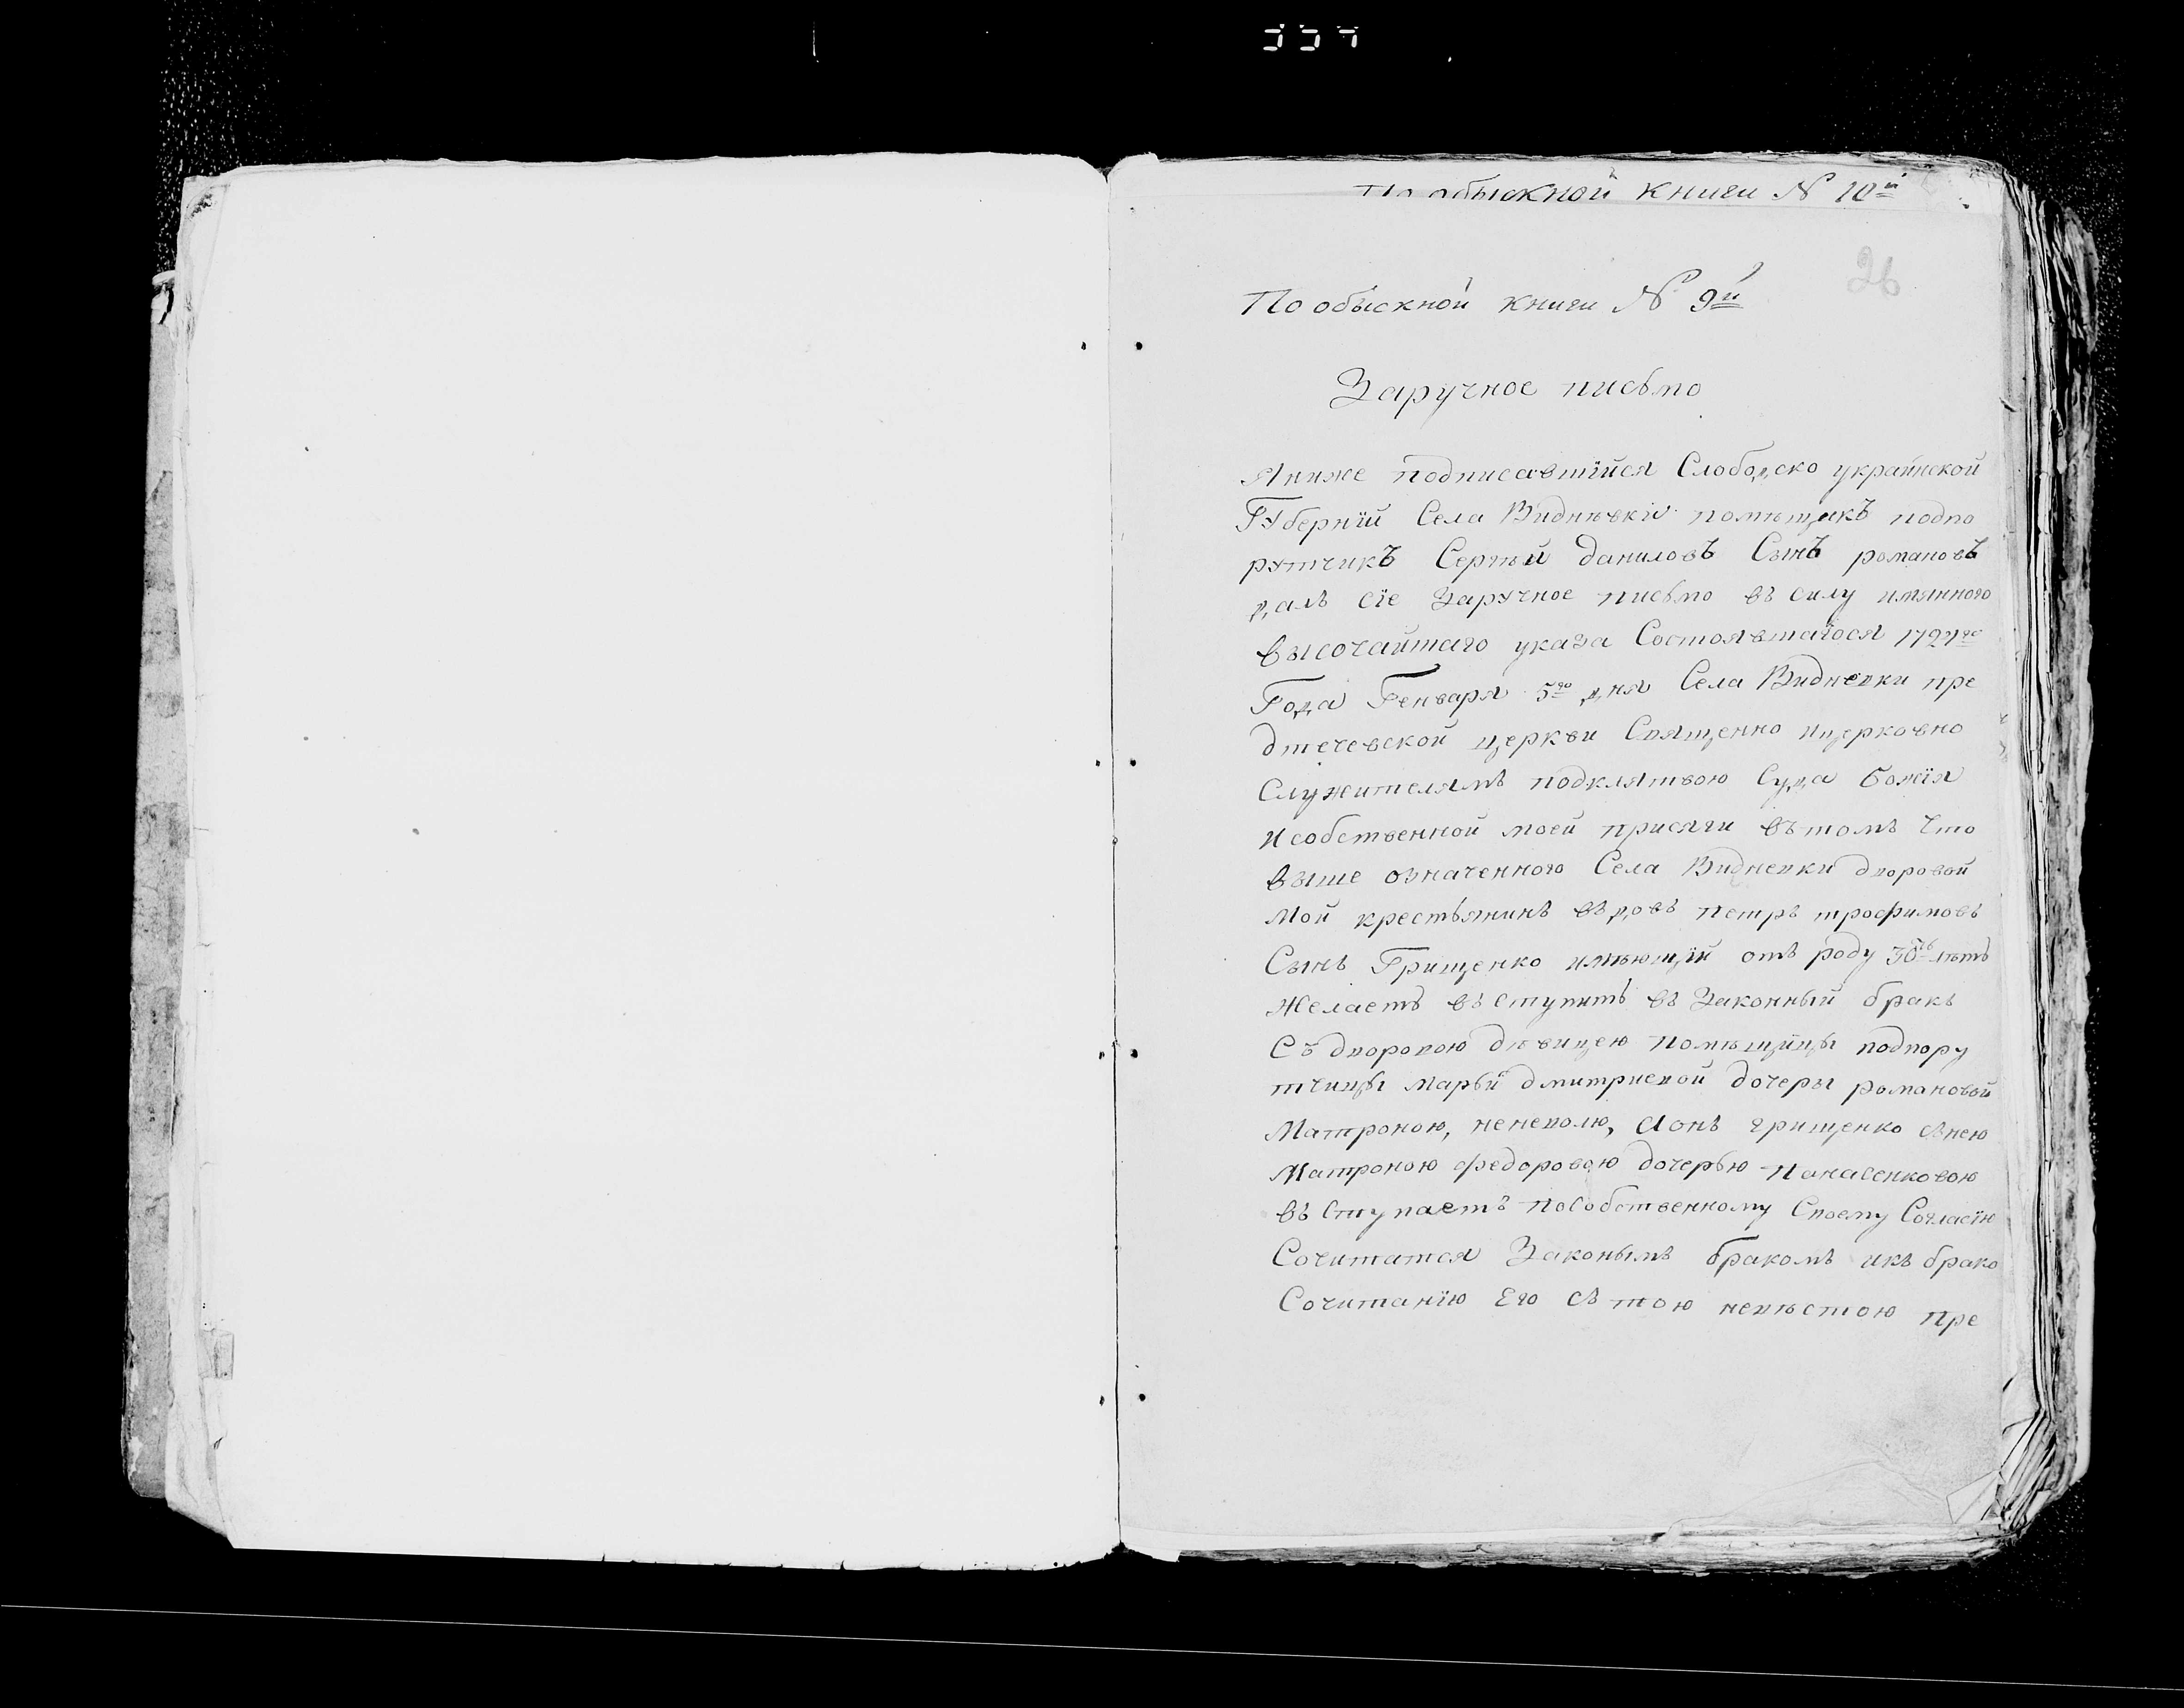 По обыскной книги № 10й
26
По обыскной книги № 9й
Заручное письмо
Я ниже подписавшійся Слободско украинской
Губерніи Села Виднѣвки помѣщикъ подпо
рутчикъ Сергѣй даниловъ Сынъ романовъ
далъ сіе Заручное письмо въ силу имянного
высочайшаго указа Состоявшагося 1724го
Года Генваря 5го дня Села Видневки пре
дтечевской церкви Священно ицерковно
Служителямъ подклятвою Суда Божія
И собственной моей присяги въ томъ Что
выше означенного Села Видневки дворовой
Мой крестьянинъ въдовъ петръ трофимовъ
Сынъ Грищенко имѣющій отъ роду 30ть лѣтъ
Желаетъ въступить въ Законный бракъ
Съ дворовою дѣвицею помѣщицы подпору
тчицы Марьи дмитриевой дочеры романовой
Матроною, неневолю, Аонъ грищенко снею
Матроною федоровою дочерью Панасенковою
въ Ступаетъ пособственному Своему Согласію
Сочитатся Законымъ бракомъ икъ брако
Сочитанію Его съ тою невѣстою пре